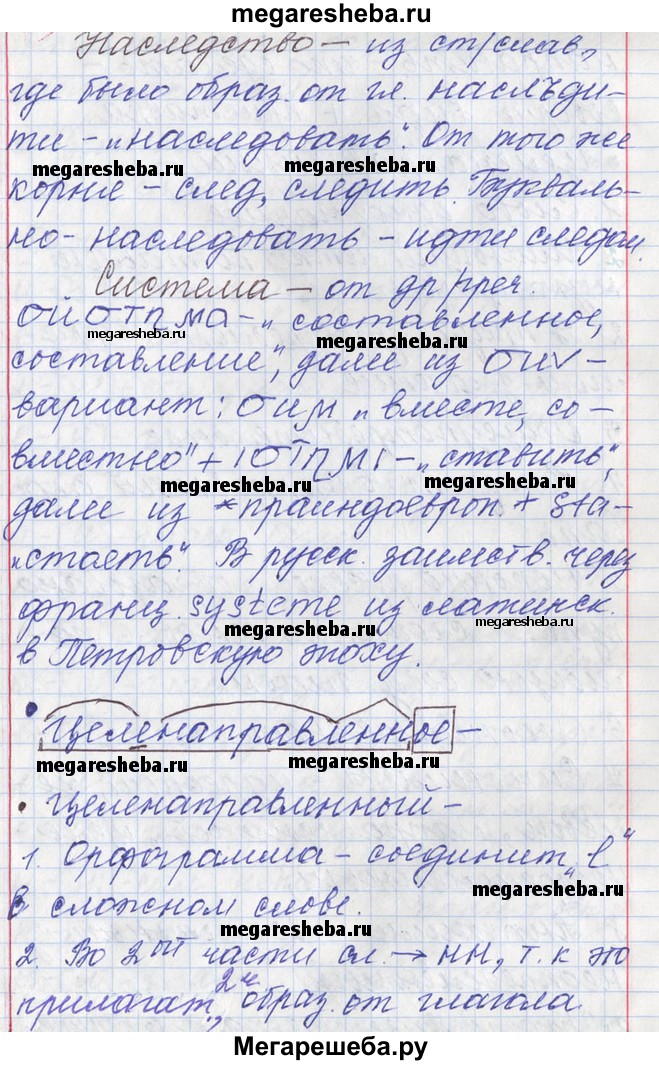 megaresheba.ru
Наследство – из ст/слав.,
где было образ. от гл. наслъди-
ти – „наследовать". От того же
megaresheba.ru megaresheba.ru
корня – след, следить. Букваль-
но – наследовать – идти следом.
Система – от др/греч.
megaresheba.ru megaresheba.ru
– „составленное,
составление", далее из
вариант: „вместе, со-
вместно" + – „ставить",
megaresheba.ru megaresheba.ru
далее из *праиндоевроп. + sta-
„стоять". В русск. заимств. через
франц. systeme из латинск.
megaresheba.ru megaresheba.ru
в Петровскую эпоху.
• Целенаправленное –
megaresheba.ru megaresheba.ru
• Целенаправленный –
1. Орфограмма – соединит. „е"
megaresheba.ru
в сложном слове.
2. Во 2ой части сл. → нн, т.к это
прилагат., образ. от глагола.
Мегарешеба.ру